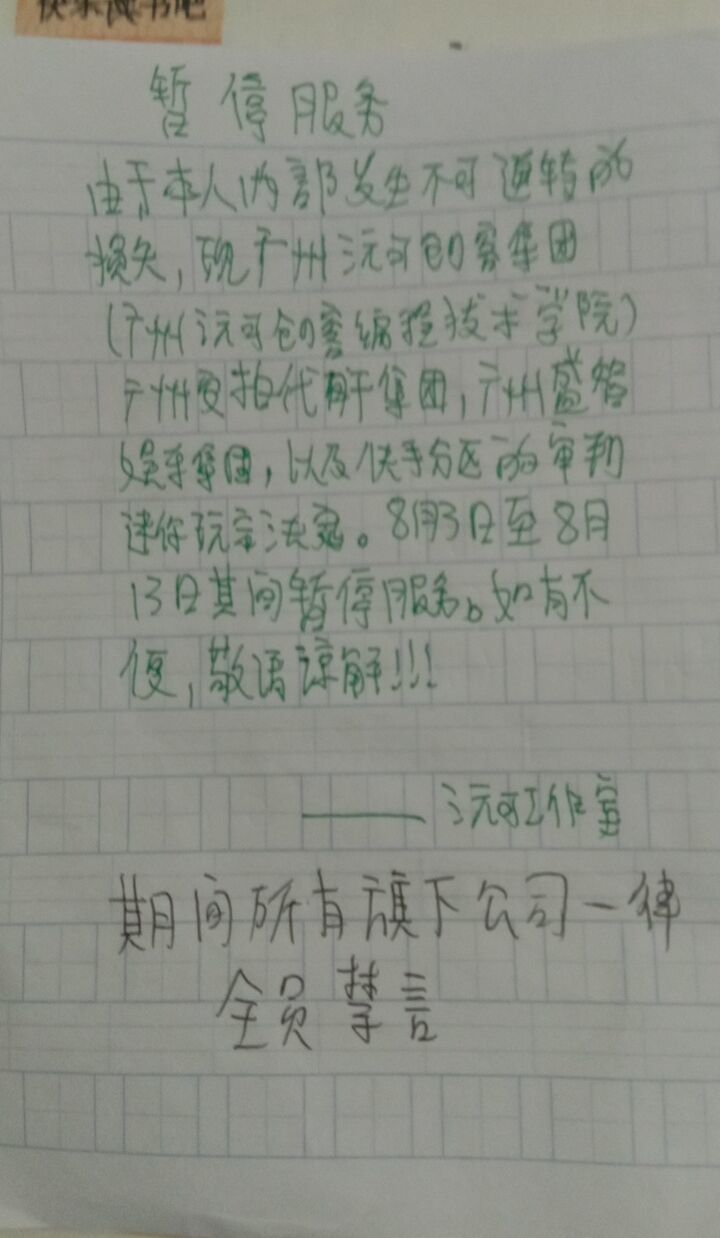 快乐读书吧
暂停服务
由于本人内部发生不可逆转的
损失,现广州沅可创客集团
(广州沅可创客编程技术学院)
广州文拍代肝集团,广州盛焰
娱乐集团,以及快手分区的审判
迷你玩家决定。8月3日至8月
13日其间暂停服务。如有不
便,敬语谅解!!!
——沅可工作室
期间所有旗下公司一律
全员禁言